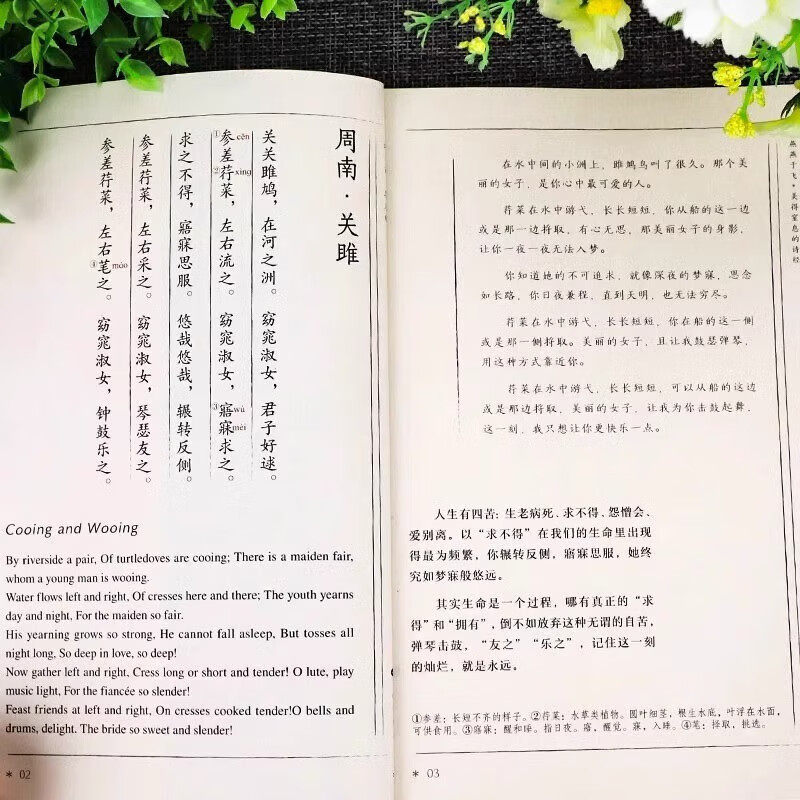 周南·关雎
关关雎鸠，在河之洲。窈窕淑女，君子好逑。
①参cēn差②荇xìng菜，左右流之。窈窕淑女，③寤wù寐mèi求之。
求之不得，寤寐思服。悠哉悠哉，辗转反侧。
参差荇菜，左右采之。窈窕淑女，琴瑟友之。
参差荇菜，左右④笔máo之。窈窕淑女，钟鼓乐之。
Cooing and Wooing
By riverside a pair, Of turtledoves are cooing; There is a maiden fair,
whom a young man is wooing.
Water flows left and right, Of cresses here and there; The youth yearns
day and night, For the maiden so fair.
His yearning grows so strong, He cannot fall asleep, But tosses all
night long, So deep in love, so deep!
Now gather left and right, Cress long or short and tender! O lute, play
music light, For the fiancée so slender!
Feast friends at left and right, On cresses cooked tender!O bells and
drums, delight, The bride so sweet and slender!
* 02
燕燕于飞·美得窒息的诗经
在水中间的小洲上，雎鸠鸟叫了很久。那个美
丽的女子，是你心中最可爱的人。
荇菜在水中游弋，长长短短，你从船的这一边
或是那一边捋取，有心无思，那美丽女子的身影，
让你一夜一夜无法入梦。
你知道她的不可追求，就像深夜的梦寐，思念
如长路，你日夜兼程，直到天明，也无法穷尽。
荇菜在水中游弋，长长短短，你在船的这一侧
或是那一侧捋取。美丽的女子，且让我鼓瑟弹琴，
用这种方式靠近你。
荇菜在水中游弋，长长短短，可以从船的这边
或是那边捋取，美丽的女子，让我为你击鼓起舞，
这一刻，我只想让你更快乐一点。
人生有四苦：生老病死、求不得、怨憎会、
爱别离。以“求不得”在我们的生命里出现
得最为频繁，你辗转反侧，寤寐思服，她终
究如梦寐般悠远。
其实生命是一个过程，哪有真正的“求
得”和“拥有”，倒不如放弃这种无谓的自苦，
弹琴击鼓，“友之”“乐之”，记住这一刻
的灿烂，就是永远。
①参差：长短不齐的样子。②荇菜：水草类植物。圆叶细茎，根生水底，叶浮在水面，
可供食用。③寤寐：醒和睡。指日夜。寤，醒觉。寐，入睡。④笔：择取，挑选。
* 03